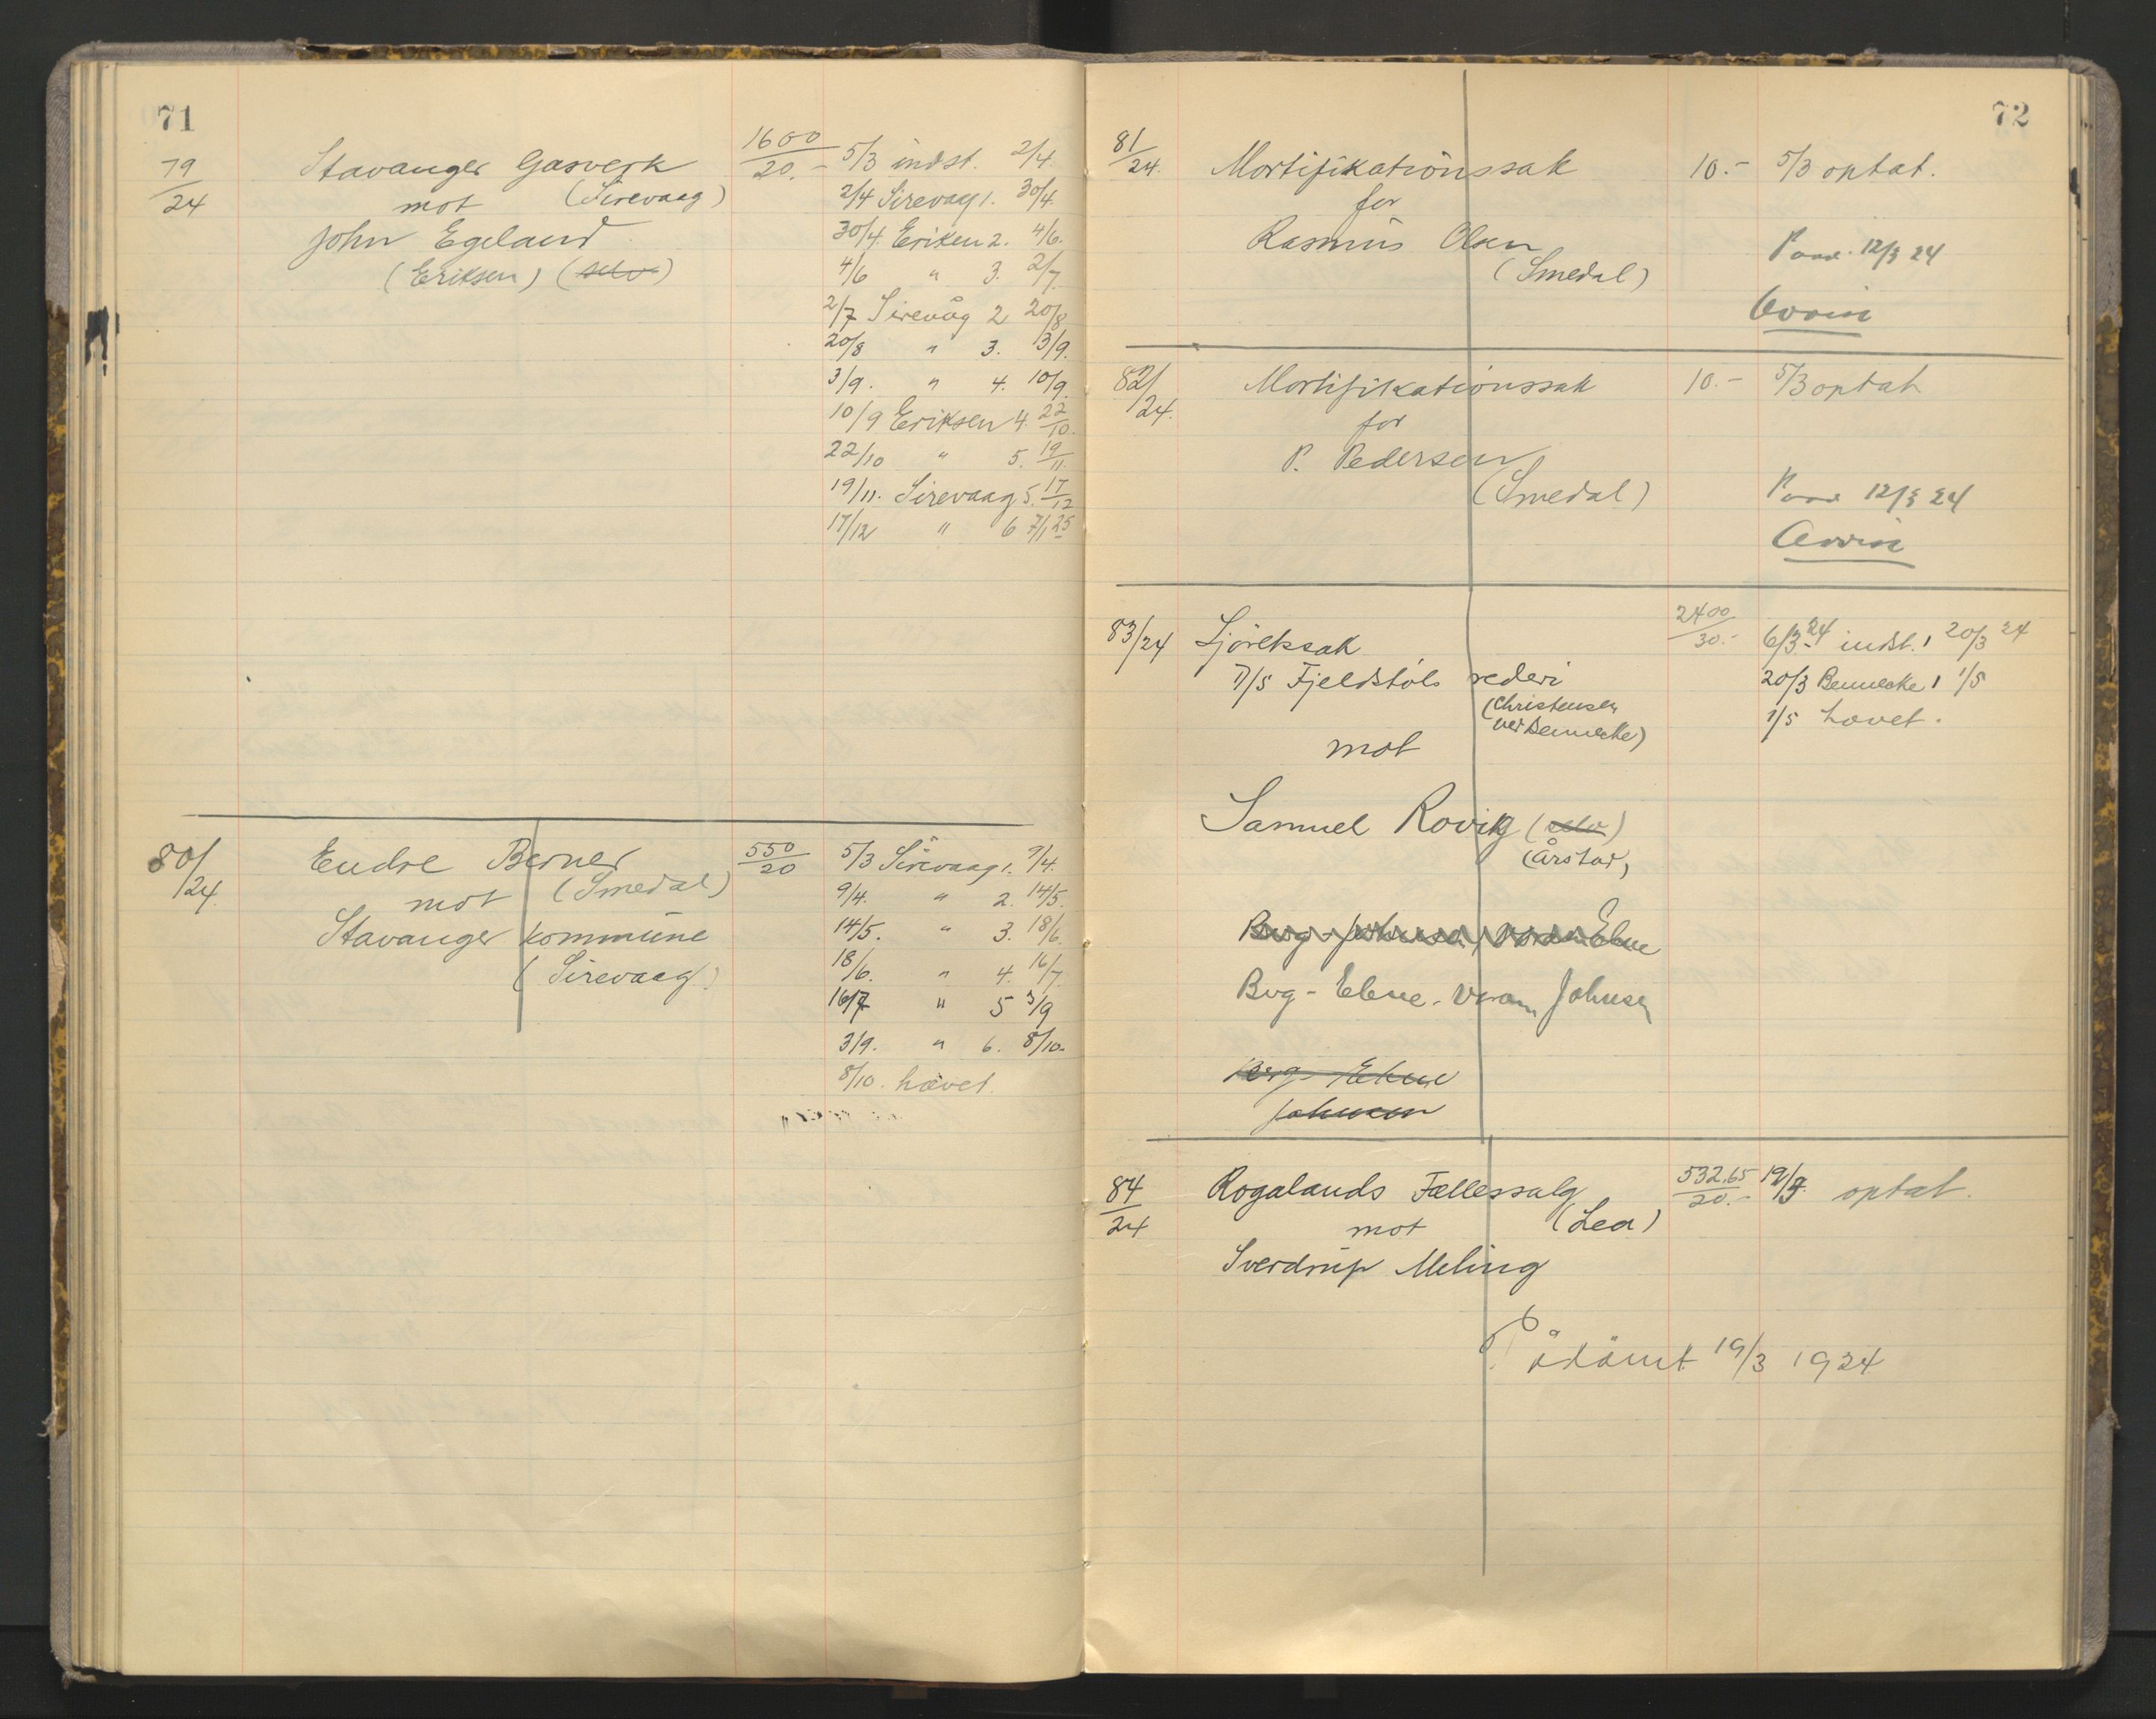 71
79/24 Stavanger Gasverk 1600/20.- 5/3 indst. 2/4.
mot (Sirevaag) 2/4 Sirevaag 1. 30/4.
John Egeland 30/4. Eriksen 2. 4/6.
(Eriksen) (selv) 4/6 " 3. 2/7.
2/7 Sirevåg 2 20/8
20/8 " 3. 3/9.
3/9. " 4. 10/9.
10/9 Eriksen 4. 22/10.
22/10 " 5. 19/11.
19/11. Sirevaag 5. 17/12
17/12 " 6 7/1 25
80/24. Endre Berner 550/20 5/3 Sirevaag 1. 9/4.
mot (Smedal) 9/4. " 2. 14/5.
Stavanger kommune 14/5. " 3. 18/6.
(Sirevaag) 18/6. " 4. 16/7.
16/7 " 5 3/9
3/9. " 6. 8/10.
8/10. hævet.
72
81/24. Mortifikationssak 10.- 5/3 optat.
for
Rasmus Olsen 12/3 24
(Smedal)
82/24. Mortifikationssak 10.- 5/3 optat
for
P. Pedersen
(Smedal) 12/3 24
83/24 Sjöretssak 2400/30.- 6/3.24 indst. 1 20/3 24
Fjeldstøls rederi 20/3 Bennecke 1 1/5
(Christensen
ved Bennecke) 1/5 hævet.
mot
Samuel Rovik (selv)
(Årstad)
Bvg - Elene - Johnsen
Johnsen
84/24 Rogalands Fællessalg 532.65/20.- optat.
mot (Lea)
Sverdrup Meling
Pådömt 19/3 1924